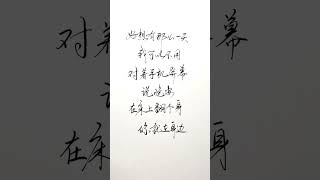 好想有那么一天
我可以不用
对着手机屏幕
说晚安
在床上翻个身
你就在身边